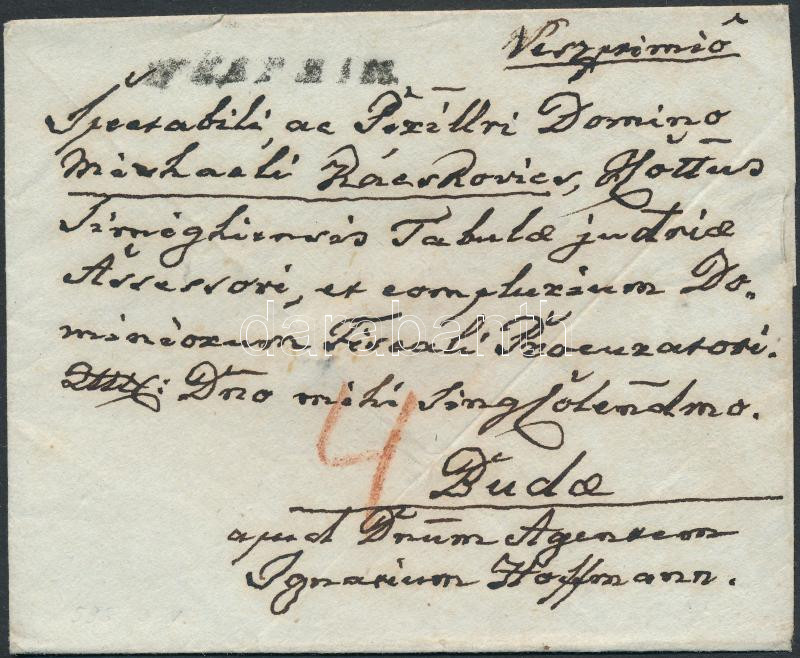 Veszprimió
WESPRIM.
Spectabili, ac Perillri Domino
Michaeli Rácskovics, Cottus
Simeghiensis Tabulæ judriæ
Assessori, et complurium Do-
miniorum Fiscali Procuratori.
Dño mihi Sing Colendmo.
4
Budæ
apud Dnūm Agentem
Ignatium Hoffmann.
darabanth